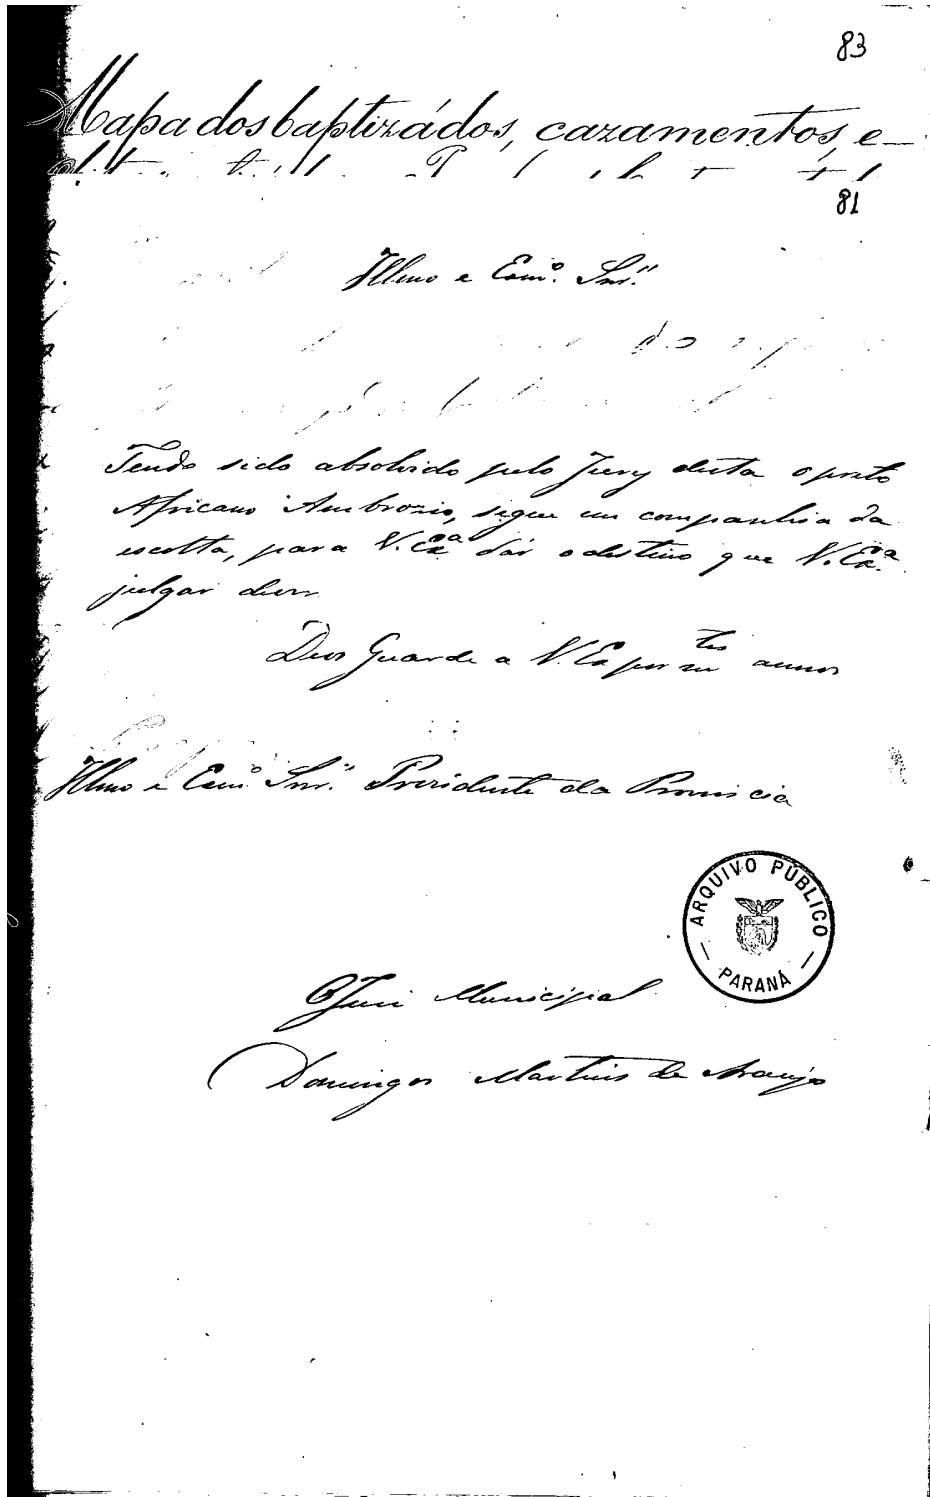 83
Mapa dos baptizádos, cazamentos, e
81
Illmo e Exmº. Snr.
Tendo sido absolvido pelo Jury desta o preto
Africano Ambrozio, segue em companhia da
escolta, para V. Exª dár o destino que V. Exª.
julgar dever
Deos Guarde a V. Ex por mtes annos
Illmo e Exmº Snr. Prezidente da Provincia
ARQUIVO PÚBLICO
PARANÁ
O Juiz Municipal
Domingos Martins de Araujo